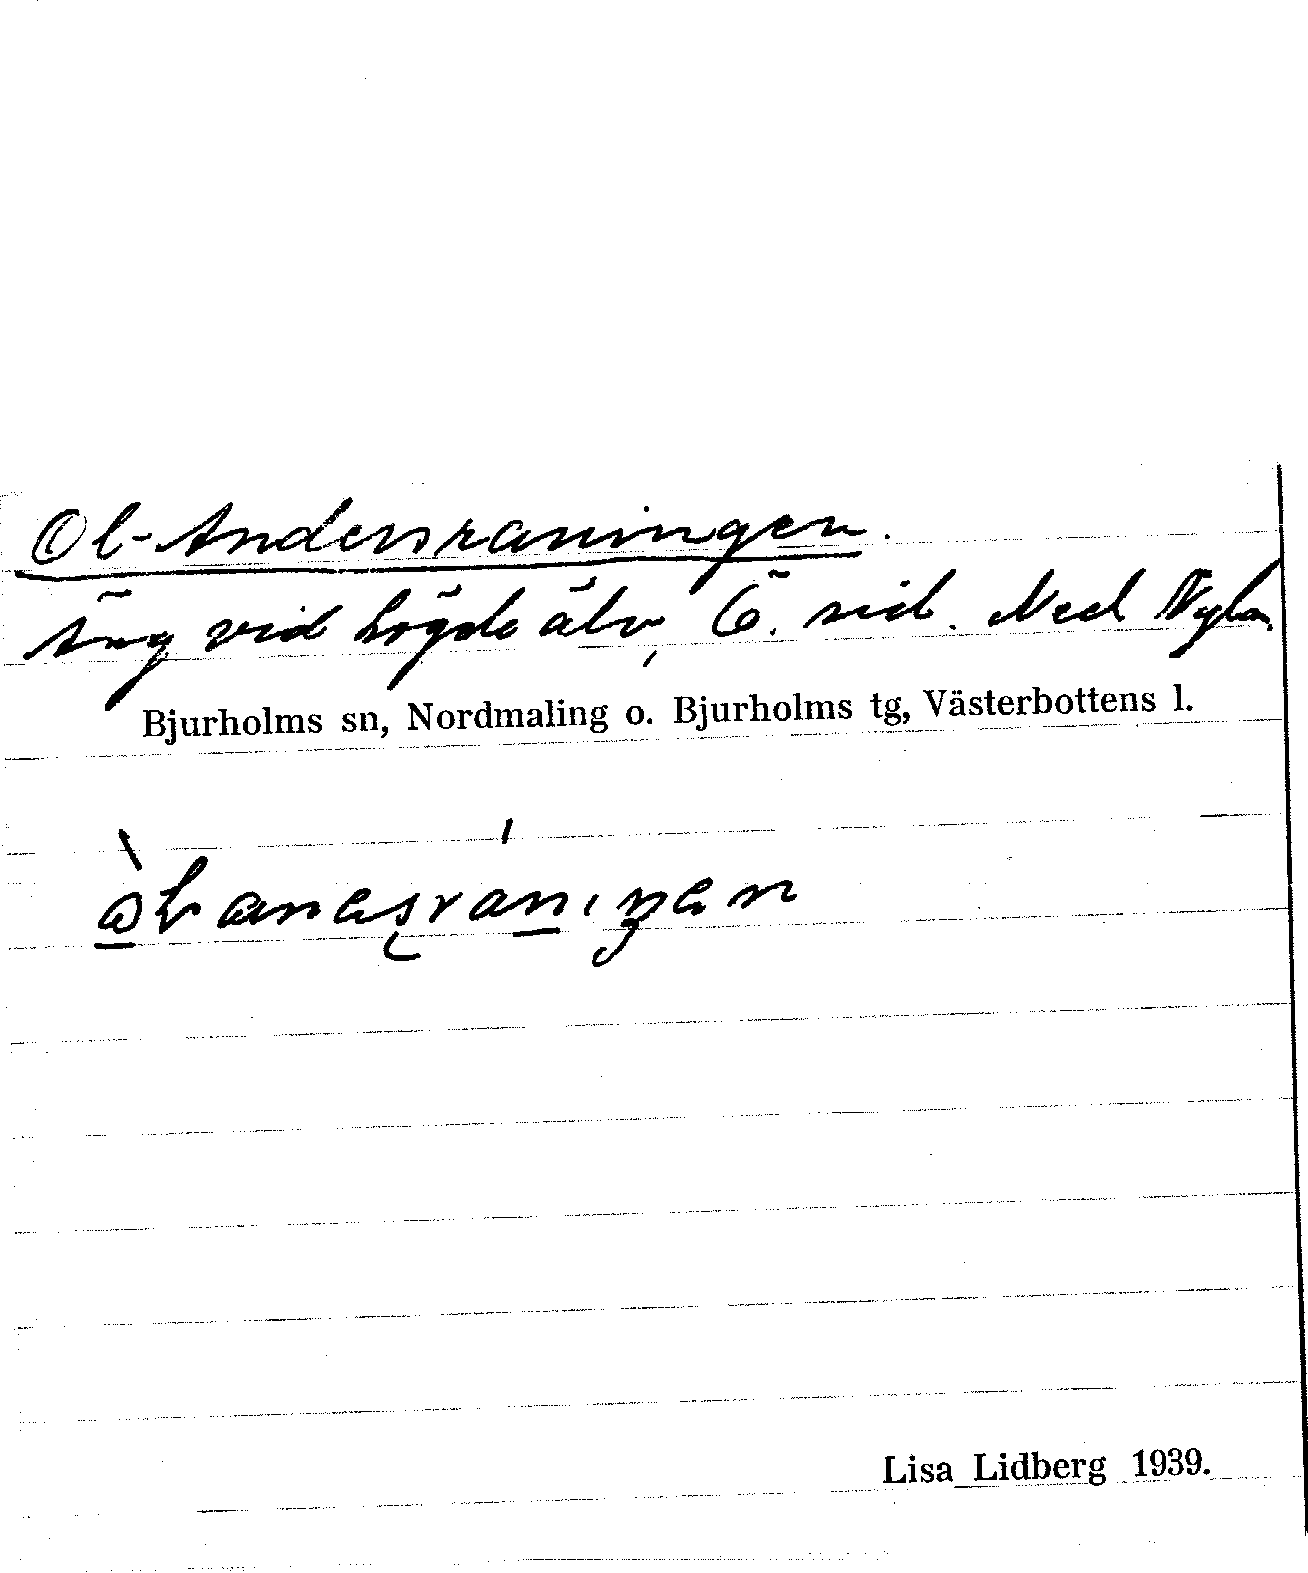 Ol-Andersraningen.
Äng vid Lögde älv, Ö. sid. Ned Nylan.
Bjurholms sn, Nordmaling o. Bjurholms tg, Västerbottens l.
Lisa Lidberg 1939.